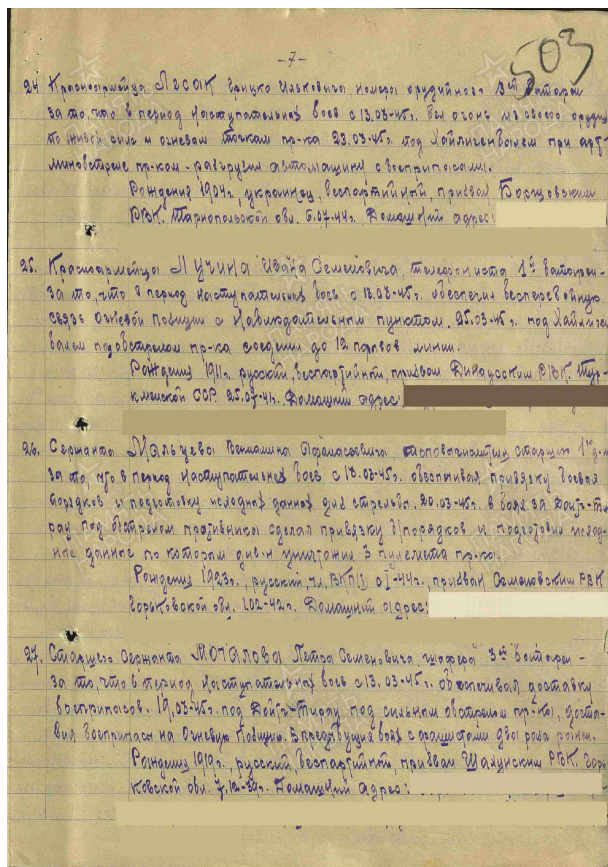 -7-
503
24. Красноармейца Лесак Грицко Ильковича, номера орудийного 3ей батареи
за то, что в период наступательных боев с 13.03-45г. Вы огонь из своего орудия
по живой силе и огневым точкам пр-ка 23.03-45г. под Хайлигенвалем при арт-
минобстреле пр-ком - разгрузил автомашину с боеприпасами.
Рождения 1904г., украинец, беспартийный, призван Борщовским
РВК. Тарнопольской обл. 6.07-44г. Домашний адрес:
25. Красноармейца Лучина Ивана Семеновича, телефониста 1й батареи-
за то, что в период наступательных боев с 13.03-45г. обеспечил бесперебойную
связь огневой позиции с наблюдательным пунктом. 25.03-45г. под Хайлиген-
валем под обстрелом пр-ка соединил до 12 порывов линии.
Рождения 1911г. русский, беспартийный, призван РВК. Тур-
кменской ССР. 25.07-41г. Домашний адрес:
26. Сержанта Мальцева Вениамина Афанасьевича, топовычислителя старшего 1го д-на
за то, что в период наступательных боев с 13.03-45г. обеспечивал привязку боевых
порядков и подготовку исходных данных для стрельбы. 20.03-45г. в боях за Дойч-Ти-
рау под обстрелом противника сделал привязку б/порядков и подготовил исход-
ные данные по которым див-н уничтожил 3 пулемета пр-ка.
Рождения 1923г., русский, чл. ВКП(б) с I-44г., призван Семеновским РВК
Горьковской обл. 1.02-42г. Домашний адрес:
27. Старшего сержанта Мочалова Петра Семеновича, шофера 3ей батареи -
за то, что в период наступательных боев с 13.03-45г. обеспечивал доставку
боеприпасов. 19.03-45г. под Дойч-Тирау под сильным обстрелом пр-ка, доста-
вил боеприпасы на огневую позицию. В предыдущих боях с фашистами два раза ранен.
Рождения 1919г., русский, беспартийный, призван Шахунским РВК. Горь-
ковской обл. 7.12-39г. Домашний адрес: